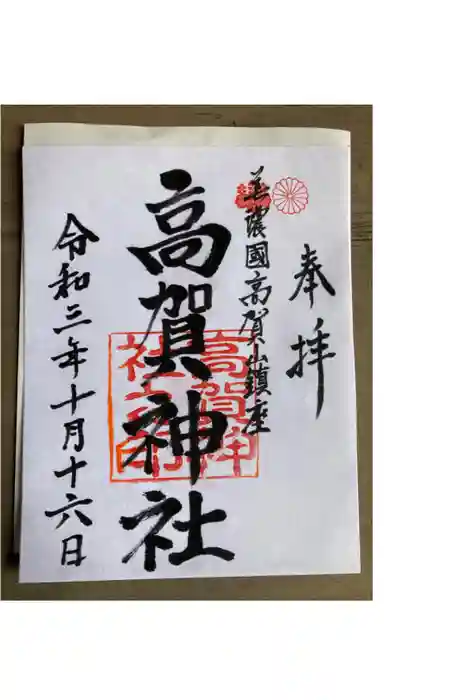 奉拝
美濃國高賀山鎮座
高賀神社
高賀神
社之印
令和三年十月十六日